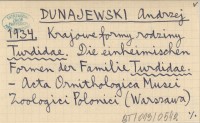 DUNAJEWSKI Andrzej
1934. Krajowe formy rodziny
Turdidae. Die einheimischen
Formen der Familie Turdidae.
– Acta Ornithologica Musei
Zoologici Polonici (Warszawa)